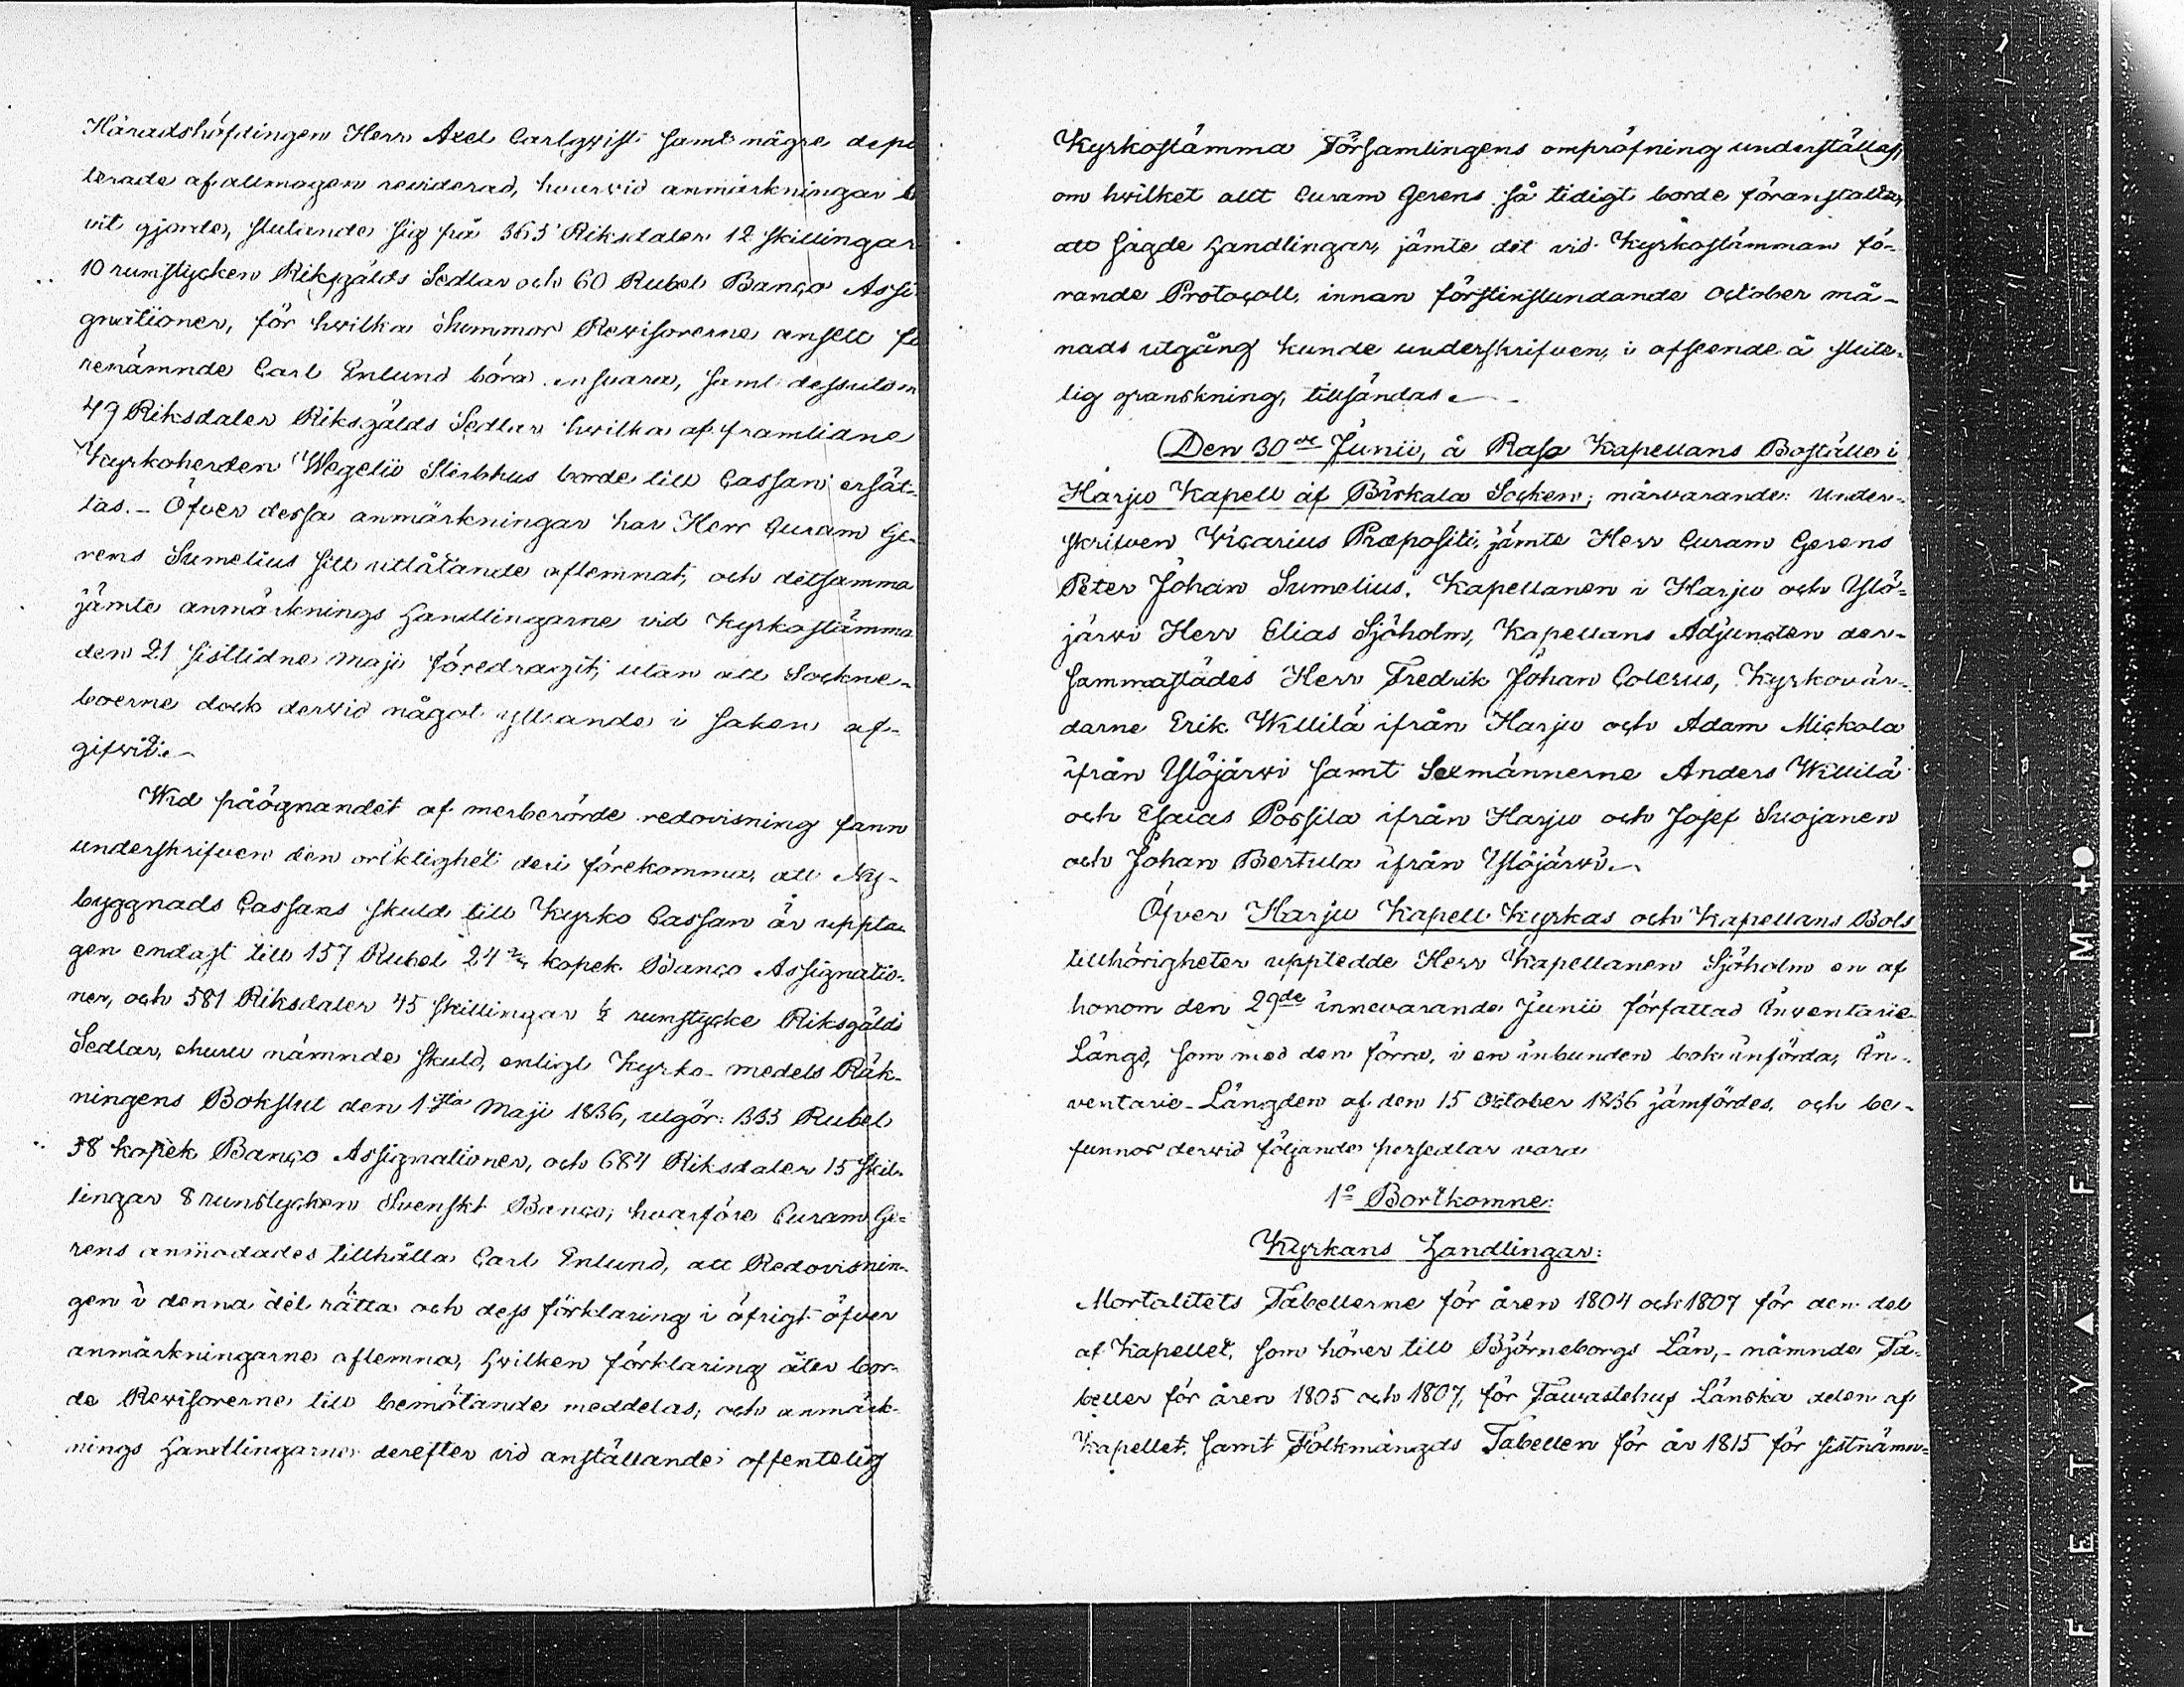 Häradshöfdingen Herr Axel Carlqvist samt någre depu
terade af allmogen reviderad, hvarvid anmärkningar bli
vit gjorde, slutande sig på 363 Riksdaler 12 skillingar
10 runstycken Riksgälds Sedlar och 60 Rubel Banco Assi
gnationer, för hvilka Summor Revisorerne ansett fö
renämnde Carl Enlund böra ansvara, samt dessutom
49 Riksdaler Riksgälds Sedlar hvilka af framlidne
Kyrkoherden Wegelii Sterbhus borde till Cassan ersät-
tas. - Öfver dessa anmärkningar har Herr Curam Ge-
rens Sumelius sitt utlåtande aflemnat, och detsamma
jämte anmärknings Handlingarne vid Kyrkostämma
den 21 sistlidne Maji föredragit, utan att Sockne-
boerne dock dervid något yttrande i saken af-
gifvit. -
Wid påögnandet af merberörde redovisning fann
underskrifven den oriktighet deri förekomma, att Ny-
byggnads Cassans skuld till Kyrko Cassan är uppta-
gen endast till 157 Rubel 24 kopek Banco Assignatio-
ner, och 581 Riksdaler 45 skillingar ½ runstycke Riksgälds
Sedlar, ehuru nämnde skuld, enligt Kyrko-medels Räk-
ningens Bokslut den 1sta Maji 1836, utgör: 333 Rubel
38 kopek Banco Assignationer, och 684 Riksdaler 15 skil-
lingar 8 runstycken Svenskt Banco; hvarföre Curam Ge-
rens anmodades tillhålla Carl Enlund, att Redovisnin-
gen i denna del rätta och dess förklaring i öfrigt öfver
anmärkningarne aflemna, hvilken förklaring åter bor-
de Revisorerne till bemötande meddelas, och anmärk-
nings Handlingarne derefter vid anställande offentelig
Kyrkostämma Församlingens ompröfning underställas,
om hvilket allt Curam Gerens så tidigt borde föranstalta,
att sagde Handlingar, jämte det vid Kyrkostämman fö-
rande Protocoll, innan förstinstundande October må-
nads utgång kunde underskrifven, i afseende å slute-
lig granskning, tillsändas. -
Den 30de Junii, å Rasa Kapellans Boställe i
Harju Kapell af Birkala Socken; närvarande: Under-
skrifven Vicarius Præpositi, jämte Herr Curam Gerens
Peter Johan Sumelius, Kapellanen i Harju och Ylö-
järvi Herr Elias Sjöholm, Kapellans Adjuncten der-
sammastädes Herr Fredrik Johan Colerus, Kyrkovär-
darne Erik Willilä ifrån Harju och Adam Mickola
ifrån Ylöjärvi samt Sexmännerne Anders Willilä
och Esaias Possila ifrån Harju och Josef Suojanen
och Johan Bertula ifrån Ylöjärvi. -
Öfver Harju Kapell Kyrkas och Kapellans Bols
tillhörigheter uppledde Herr Kapellanen Sjöholm en af
honom den 29de innevarande Junii författad Inventarie
Längd, som med den förra, i en inbunden bok införda, In-
ventarie-Längden af den 15 October 1836 jämfördes, och be-
funnos dervid följande persedlar vara
1o Bortkomne:
Kyrkans Handlingar:
Mortalitets Tabellerne för åren 1804 och 1807 för den del
af Kapellet, som hörer till Björneborgs Län, - nämnde Ta-
beller för åren 1805 och 1807, för Tawastehus Länska delen af
Kapellet, samt Folkmängds Tabellen för år 1815 för sistnämn-
FILM
FETYA